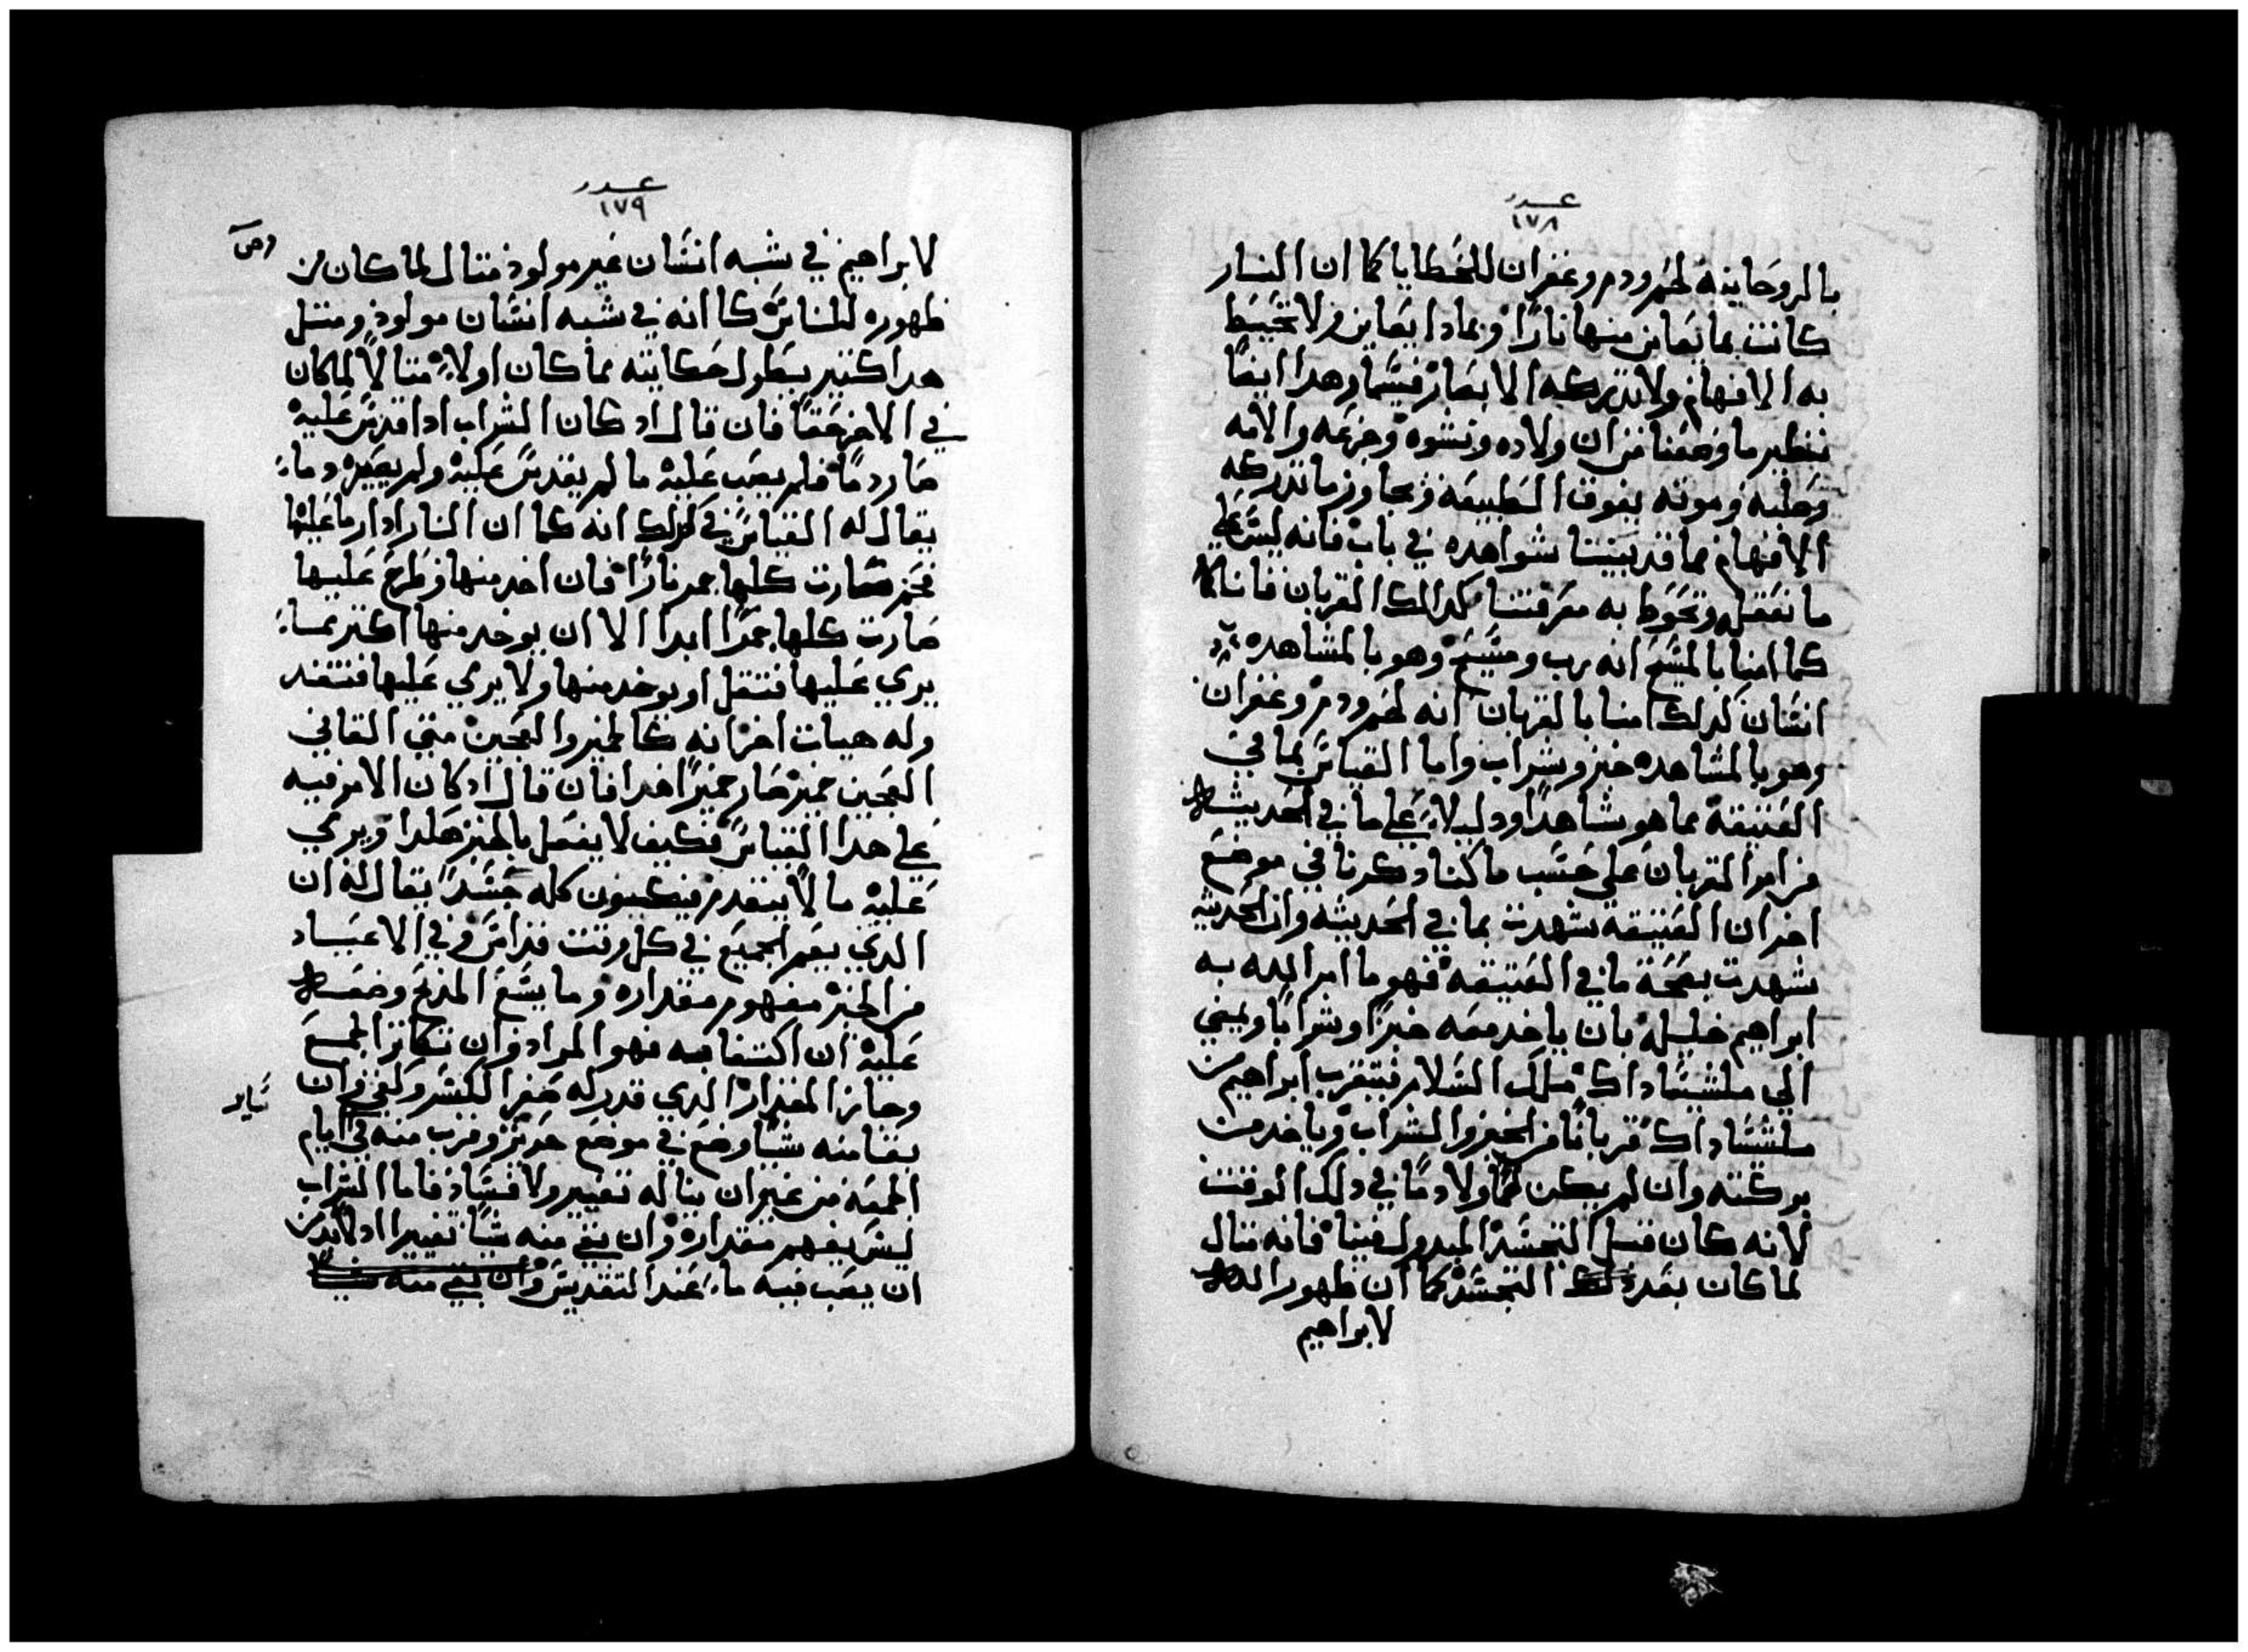 عدد
١٧٨
بالروحانيه لحم ودم وغفران للخطايا كما ان النار
كانت بما يعاين منها نارًا وبما دا يعاين ولا تحيط
به الافهام ولا تدركه الابصار فيشما وهدا ايضًا
نظير ما وصفنا من ان ولاده ونشوه وجزعه والامه
وصلبه وموته بفوق الطبيعه وبجاوز ما تدركه
الافهام مما قد بينتا شواهده في باب فانه ليس على
ما نعقل وتحوط به معرفتنا كدالك القربان فاننا
كما امنا بالمسيح انه رب ومسيح وهو بالمشاهده
انسان كدلك امنا بالقربان انه لحم ودم وغفران
وهو بالمشاهده خبز وشراب واما القياس بما في
العتيقة مما هو شاهدًا ودليلاً على ما في الحديثه
من امر القربان على حسب ما كنا دكرنا في موضع
اخر ان العتيقة شهدت بما في الحديثه وان الحديثه
شهدت بصحة ما في العتيقه فهو ما امر الله به
ابراهيم خليله بان ياخد معه خبزًا وشرابًا ويمضي
الي ملشيساداك ملك السلام فيتقرب ابراهيم من
ملشساداك قربانًا من الخبز والشراب وياخد من
بركته وان لم يكن لحمًا ولا دمًا في دلك الوقت
لانه كان قبل التجسد المبدول فينا فانه متال
لما كان بعد التجسد كما ان ظهور الله
لابراهيم
عدد
١٧٩
لابراهيم في شبه انسان غير مولود متال لما كان من
ظهوره للناس كا انه في شبه انسان مولود ومتل
هدا كتير يطول حكايته مما كان اولاً متالاً لما كان
في الاخر حقًا فان قال اد كان الشراب ادا قدس عليه
صار دمًا فلم يصب عليه ما لم يقدس عليه ولم يصير دماً
يقال له القياس في دلك انه كما ان النار ادا رما عليها
فحم صارت كلها جمر نارًا فان اخد منها وطرح عليها
صارت كلها جمرًا ابدا الا ان يوخد منها اكتر مما
يرمي عليها فتقل او يوخد منها ولا يرمي عليها فتنفد
وله هيات اخرانه كالخمير والعجين متي القاني
العجين خمير صار خميرًا هدا فان قال اد كان الامر فيه
على هدا القياس فكيف لا يفعل بالخبز هكدا ويرمي
عليه ما لا يتقدم فيكون كله جسدًا يقال له ان
الدي يعم الجميع في كل وقت قداس وفي الاعياد
من الخبز مفهوم مقداره وما يسع المدبح وضعه
عليه ان اكتفا فيه فهو المراد وان تكاتر الجمع
وجاز المقدار الدي قدر له صغر الكسر وكفي وان
بقا منه شيًا وضع في موضع حريز وقرب منه في ايام
الجمعه من غير ان يناله تغيير ولا فساد فاما الشراب
ليس يفهم مقداره وان بقي منه شيًا تغير اد لابد من
ان يصب فيه ماء عند التقديس وان بقي منه